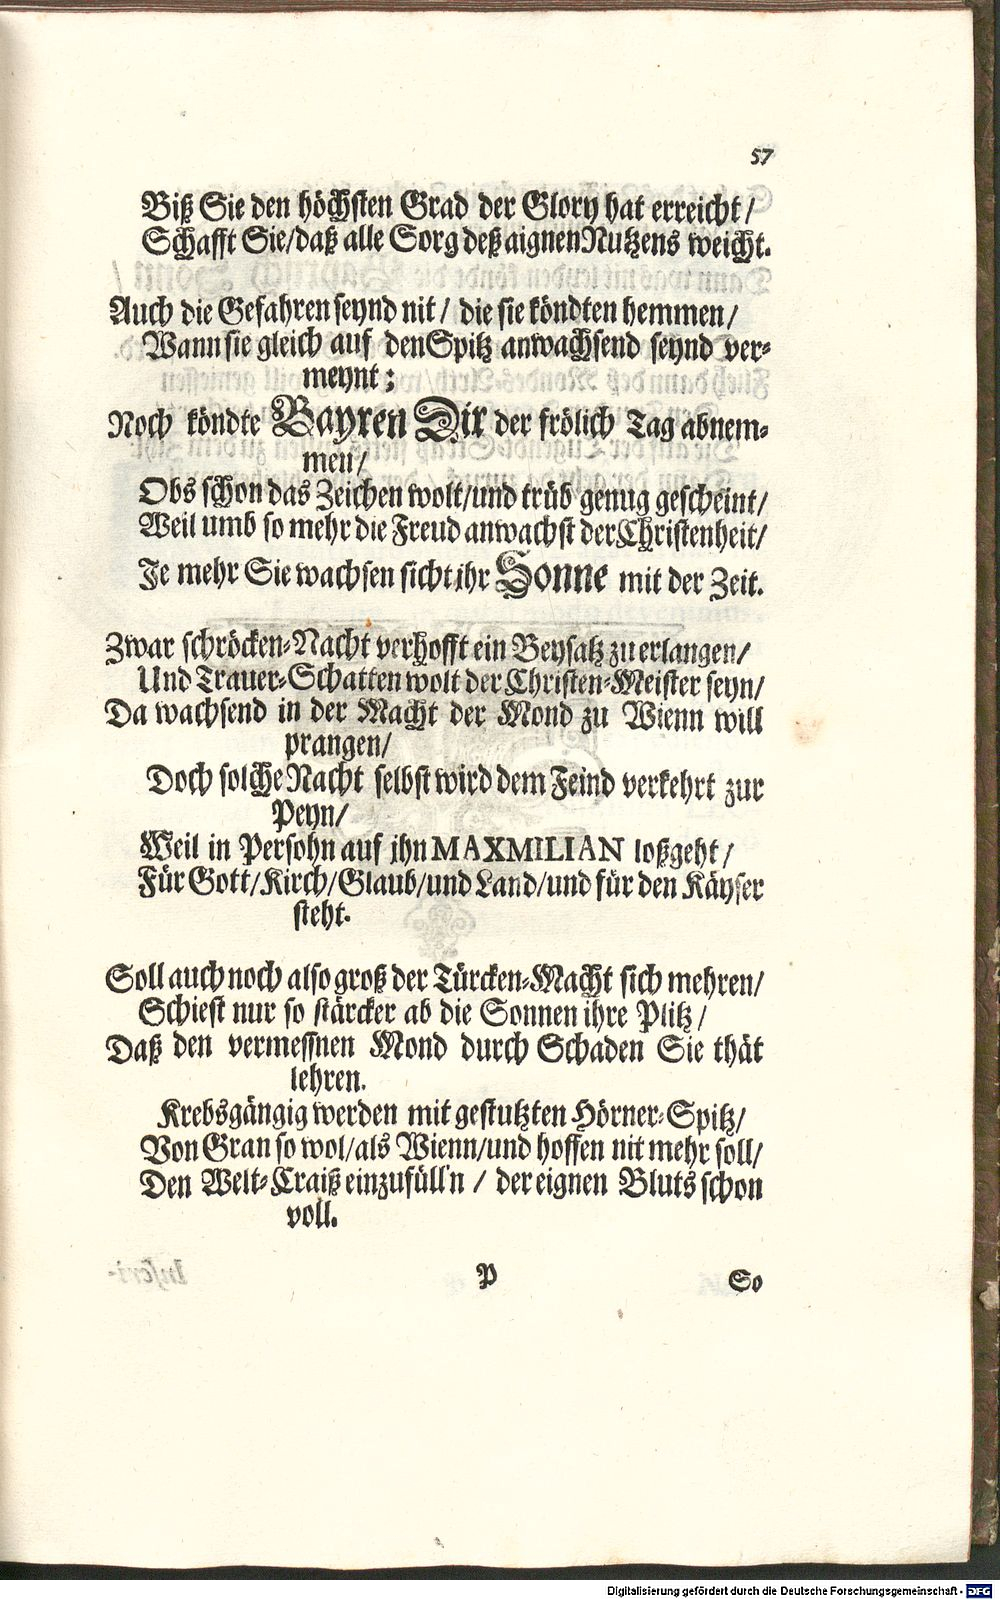 57
Biß Sie den höchsten Grad der Glory hat erreicht /
Schafft Sie/daß alle Sorg deß aignen Nutzens weicht.
Auch die Gefahren seynd nit / die sie köndten hemmen /
Wann sie gleich auf den Spitz anwachsend seynd ver-
meynt ;
Noch köndte Bayren Dir der frölich Tag abnem-
men /
Obs schon das Zeichen wolt/und trüb genug gescheint/
Weil umb so mehr die Freud anwachst der Christenheit/
Je mehr Sie wachsen sicht ihr Sonne mit der Zeit.
Zwar schröcken-Nacht verhofft ein Beysatz zu erlangen/
Und Trauer-Schatten wolt der Christen-Meister seyn/
Da wachsend in der Macht der Mond zu Wienn will
prangen/
Doch solche Nacht selbst wird dem Feind verkehrt zur
Peyn/
Weil in Persohn auf ihn MAXMILIAN loßgeht /
Für Gott/Kirch/Glaub/und Land/und für den Käyser
steht.
Soll auch noch also groß der Türcken-Macht sich mehren/
Schiest nur so stärcker ab die Sonnen ihre Plitz /
Daß den vermessnen Mond durch Schaden Sie thät
lehren.
Krebsgängig werden mit gestutzten Hörner-Spitz/
Von Gran so wol/als Wienn/und hoffen nit mehr soll/
Den Welt-Craiß einzufüll'n / der eignen Bluts schon
voll.
P
So
Digitalisierung gefördert durch die Deutsche Forschungsgemeinschaft - DFG